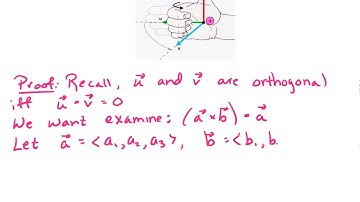 Proof: Recall, u⃗ and v⃗ are orthogonal
iff u⃗ • v⃗ = 0
We want examine: (a⃗ × b⃗) • a⃗
Let a⃗ = <a₁, a₂, a₃>, b⃗ = <b₁, b